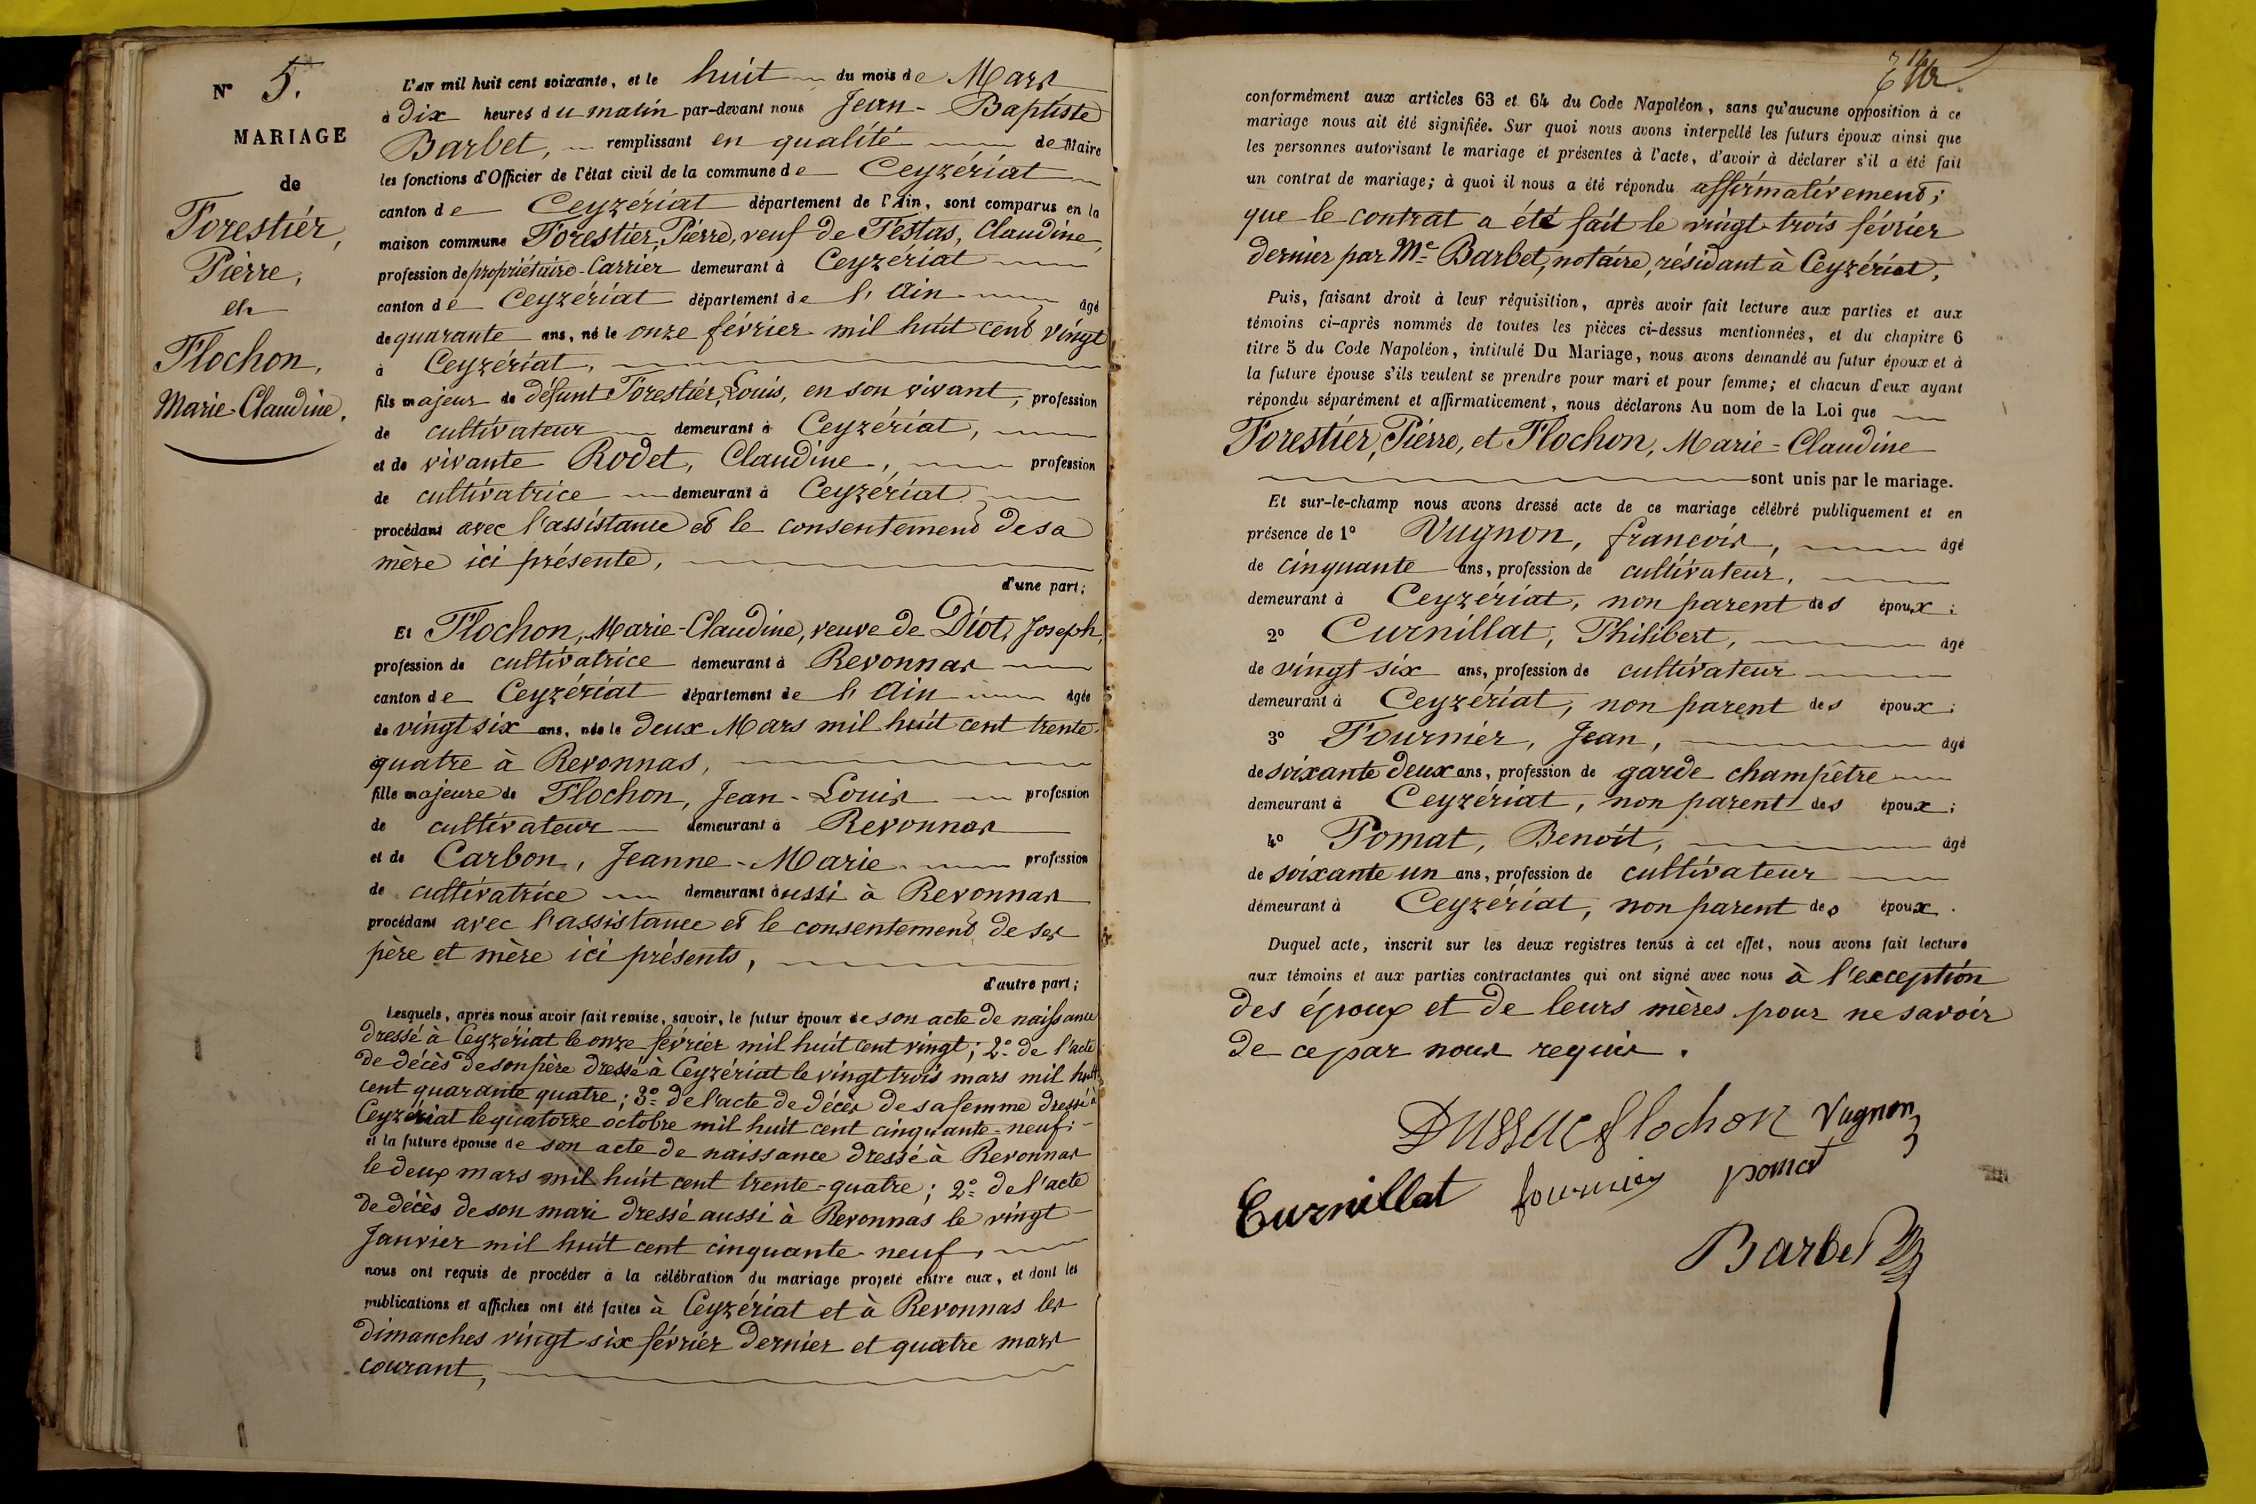 N° 5.
MARIAGE
de
Forestier,
Pierre,
et
Flochon,
Marie-Claudine.
L'an mil huit cent soixante, et le huit du mois de Mars
à Dix heures du matin par-devant nous Jean-Baptiste
Barbet, remplissant en qualité de Maire
les fonctions d'Officier de l'état civil de la commune de Ceyzériat
canton de Ceyzériat département de l'Ain, sont comparus en la
maison commune Forestier, Pierre, veuf de Testas, Claudine,
profession de propriétaire-Carrier demeurant à Ceyzériat
canton de Ceyzériat département de l'Ain âgé
de quarante ans, né le onze février mil huit cent vingt
à Ceyzériat,
fils majeur de défunt Forestier, Louis, en son vivant, profession
de cultivateur demeurant à Ceyzériat,
et de vivante Rodet, Claudine, profession
de cultivatrice demeurant à Ceyzériat
procédant avec l'assistance et le consentement de sa
mère ici présente,
d'une part;
Et Flochon, Marie-Claudine, veuve de Diot, Joseph,
profession de cultivatrice demeurant à Revonnas
canton de Ceyzériat département de l'Ain âgée
de vingt six ans, née le deux Mars mil huit cent trente-
quatre à Revonnas,
fille majeure de Flochon, Jean-Louis profession
de cultivateur demeurant à Revonnas
et de Carbon, Jeanne-Marie profession
de cultivatrice demeurant aussi à Revonnas
procédant avec l'assistance et le consentement de ses
père et mère ici présents,
d'autre part;
Lesquels, après nous avoir fait remise, savoir, le futur époux de son acte de naissance
dressé à Ceyzériat le onze février mil huit cent vingt; 2° de l'acte
de décès de son père dressé à Ceyzériat le vingt trois mars mil huit
cent quarante quatre; 3° de l'acte de décès de sa femme dressé à
Ceyzériat le quatorze octobre mil huit cent cinquante-neuf;
et la future épouse de son acte de naissance dressé à Revonnas
le deux mars mil huit cent trente-quatre; 2° de l'acte
de décès de son mari dressé aussi à Revonnas le vingt
Janvier mil huit cent cinquante neuf,
nous ont requis de procéder à la célébration du mariage projeté entre eux, et dont les
publications et affiches ont été faites à Ceyzériat et à Revonnas les
dimanches vingt-six février dernier et quatre mars
courant,
conformément aux articles 63 et 64 du Code Napoléon, sans qu'aucune opposition à ce
mariage nous ait été signifiée. Sur quoi nous avons interpellé les futurs époux ainsi que
les personnes autorisant le mariage et présentes à l'acte, d'avoir à déclarer s'il a été fait
un contrat de mariage; à quoi il nous a été répondu affirmativement;
que le contrat a été fait le vingt-trois février
dernier par Me Barbet, notaire, résidant à Ceyzériat,
Puis, faisant droit à leur réquisition, après avoir fait lecture aux parties et aux
témoins ci-après nommés de toutes les pièces ci-dessus mentionnées, et du chapitre 6
titre 5 du Code Napoléon, intitulé Du Mariage, nous avons demandé au futur époux et à
la future épouse s'ils veulent se prendre pour mari et pour femme; et chacun d'eux ayant
répondu séparément et affirmativement, nous déclarons Au nom de la Loi que
Forestier, Pierre, et Flochon, Marie-Claudine
sont unis par le mariage.
Et sur-le-champ nous avons dressé acte de ce mariage célébré publiquement et en
présence de 1° Vugnon, françois, âgé
de cinquante ans, profession de cultivateur,
demeurant à Ceyzériat, non parent des époux;
2° Curnillat, Philibert, âgé
de vingt six ans, profession de cultivateur
demeurant à Ceyzériat, non parent des époux;
3° Fournier, Jean, âgé
de soixante deux ans, profession de garde champêtre
demeurant à Ceyzériat, non parent des époux;
4° Pomat, Benoît, âgé
de soixante un ans, profession de cultivateur
demeurant à Ceyzériat, non parent des époux.
Duquel acte, inscrit sur les deux registres tenus à cet effet, nous avons fait lecture
aux témoins et aux parties contractantes qui ont signé avec nous à l'exception
des époux et de leurs mères pour ne savoir
de ce par nous requis.
flochon Vugnon
Curnillat fournier pomat
Barbet